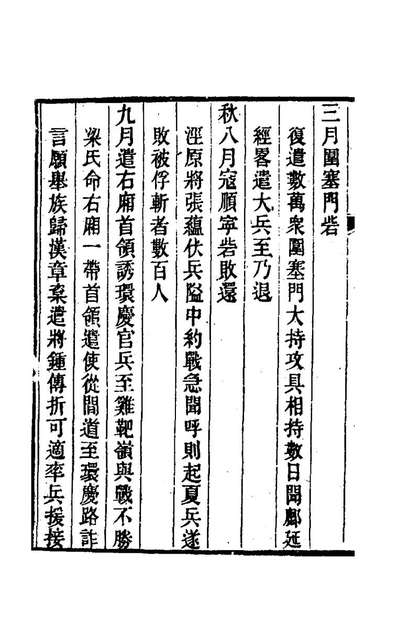 三月圍塞門砦
復遣數萬衆圍塞門大持攻具相持數日聞鄜延
經畧遣大兵至乃退
秋八月寇順寧砦敗還
涇原將張蘊伏兵隘中約戰急聞呼則起夏兵遂
敗被俘斬者數百人
九月遣右廂首領誘環慶官兵至雞靶嶺與戰不勝
梁氏命右廂一帶首領遣使從間道至環慶路詐
言願舉族歸漢章楶遣將鍾傳折可適率兵援接